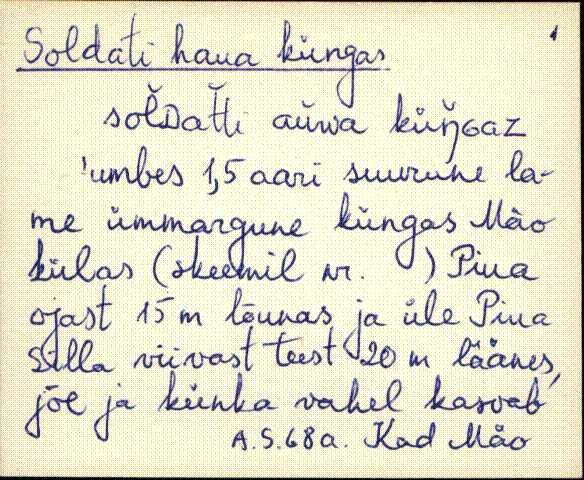 Soldati haua küngas
1
soldatti auwa küngaz
umbes 1,5 aari suurune la-
me ümmargune küngas Mäo
külas (skeemil nr. ) Piua
ojast 15 m lõunas ja üle Piua
silla viivast teest 20 m läänes,
jõe ja künka vahel kasvab
A.S. 68 a. Kad Mäo